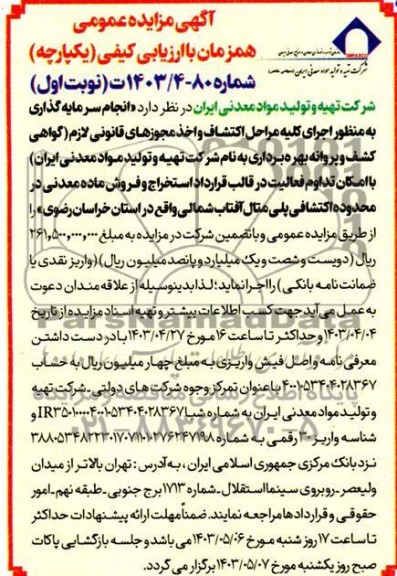 آگهی مزایده عمومی
همزمان با ارزیابی کیفی (یکپارچه)
شماره ۸۰-۱۴۰۳/۴ت (نوبت اول)
شرکت تهیه و تولید مواد معدنی ایران
شرکت تهیه و تولید مواد معدنی ایران در نظر دارد «انجام سرمایه گذاری
به منظور اجرای کلیه مراحل اکتشاف و اخذ مجوزهای قانونی لازم (گواهی
کشف و پروانه بهره برداری به نام شرکت تهیه و تولید مواد معدنی ایران)
با امکان تداوم فعالیت در قالب قرارداد استخراج و فروش ماده معدنی در
محدوده اکتشافی پلی متال آفتاب شمالی واقع در استان خراسان رضوی» را
از طریق مزایده عمومی و با تضمین شرکت در مزایده به مبلغ ۲۶۱,۵۰۰,۰۰۰,۰۰۰
ریال (دویست و شصت و یک میلیارد و پانصد میلیون ریال) (واریز نقدی یا
ضمانت نامه بانکی) را اجرا نماید؛ لذا بدینوسیله از علاقه مندان دعوت
به عمل می آید جهت کسب اطلاعات بیشتر و تهیه اسناد مزایده از تاریخ
۱۴۰۳/۰۴/۰۴ و حداکثر تا ساعت ۱۶ مورخ ۱۴۰۳/۰۴/۲۷ با در دست داشتن
معرفی نامه و اصل فیش واریزی به مبلغ چهار میلیون ریال به حساب
۴۰۰۱۰۵۳۴۰۴۰۲۸۳۶۷ با عنوان تمرکز وجوه شرکت های دولتی - شرکت تهیه
و تولید مواد معدنی ایران به شماره شبا IR۳۵۰۱۰۰۰۰۴۰۰۱۰۵۳۴۰۴۰۲۸۳۶۷ و
شناسه واریز ۳۰ رقمی به شماره ۳۸۸۰۵۳۴۸۲۲۳۰۱۷۰۷۱۱۰۱۲۷۶۲۴۷۱۹۸
نزد بانک مرکزی جمهوری اسلامی ایران، به آدرس: تهران بالاتر از میدان
ولیعصر - روبروی سینما استقلال - شماره ۱۷۱۳ برج جنوبی - طبقه نهم - امور
حقوقی و قراردادها مراجعه نمایند. ضمناً مهلت ارائه پیشنهادات حداکثر
تا ساعت ۱۷ روز شنبه مورخ ۱۴۰۳/۰۵/۰۶ می باشد و جلسه بازگشایی پاکات
صبح روز یکشنبه مورخ ۱۴۰۳/۰۵/۰۷ برگزار می گردد.
ParsNamadData
۰۲۱-۸۸۳۴۹۶۷۰-۵